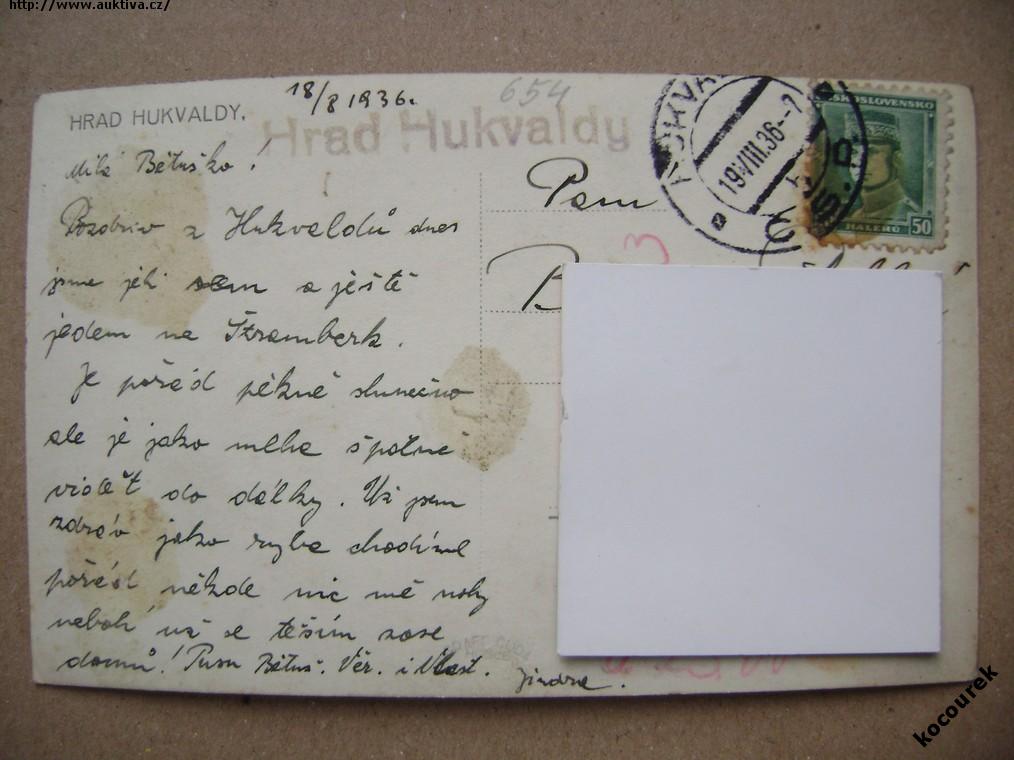 http://www.auktiva.cz/
HRAD HUKVALDY.
18/8 1936.
654
Hrad Hukvaldy
Milá Bětuško!
Pozdrav z Hukvaldů dnes
jsme jeli sem a ještě
jedem na Štramberk.
Je pořád pěkně slunečno
ale je jako mlha špatně
vidět do dálky. Už jsem
zdráv jako ryba chodíme
pořád někde nic mě nohy
nebolí už se těším zase
domů! Pusu Bětuš. Věr. i Vlast.
Jindra.
Paní
B
3
19.VIII.36
ČSR
ČESKOSLOVENSKO
50
HALÉŘŮ
kocourek